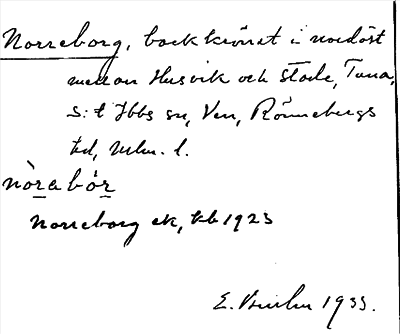 Norreborg, backkrönet i nordöst
mellan Husvik och Stade, Tuna,
S:t Ibbs sn, Ven, Rönnebergs
hd, Mlm. l.
nòrabór
Norreborg ek, kb 1923
E. 1933.